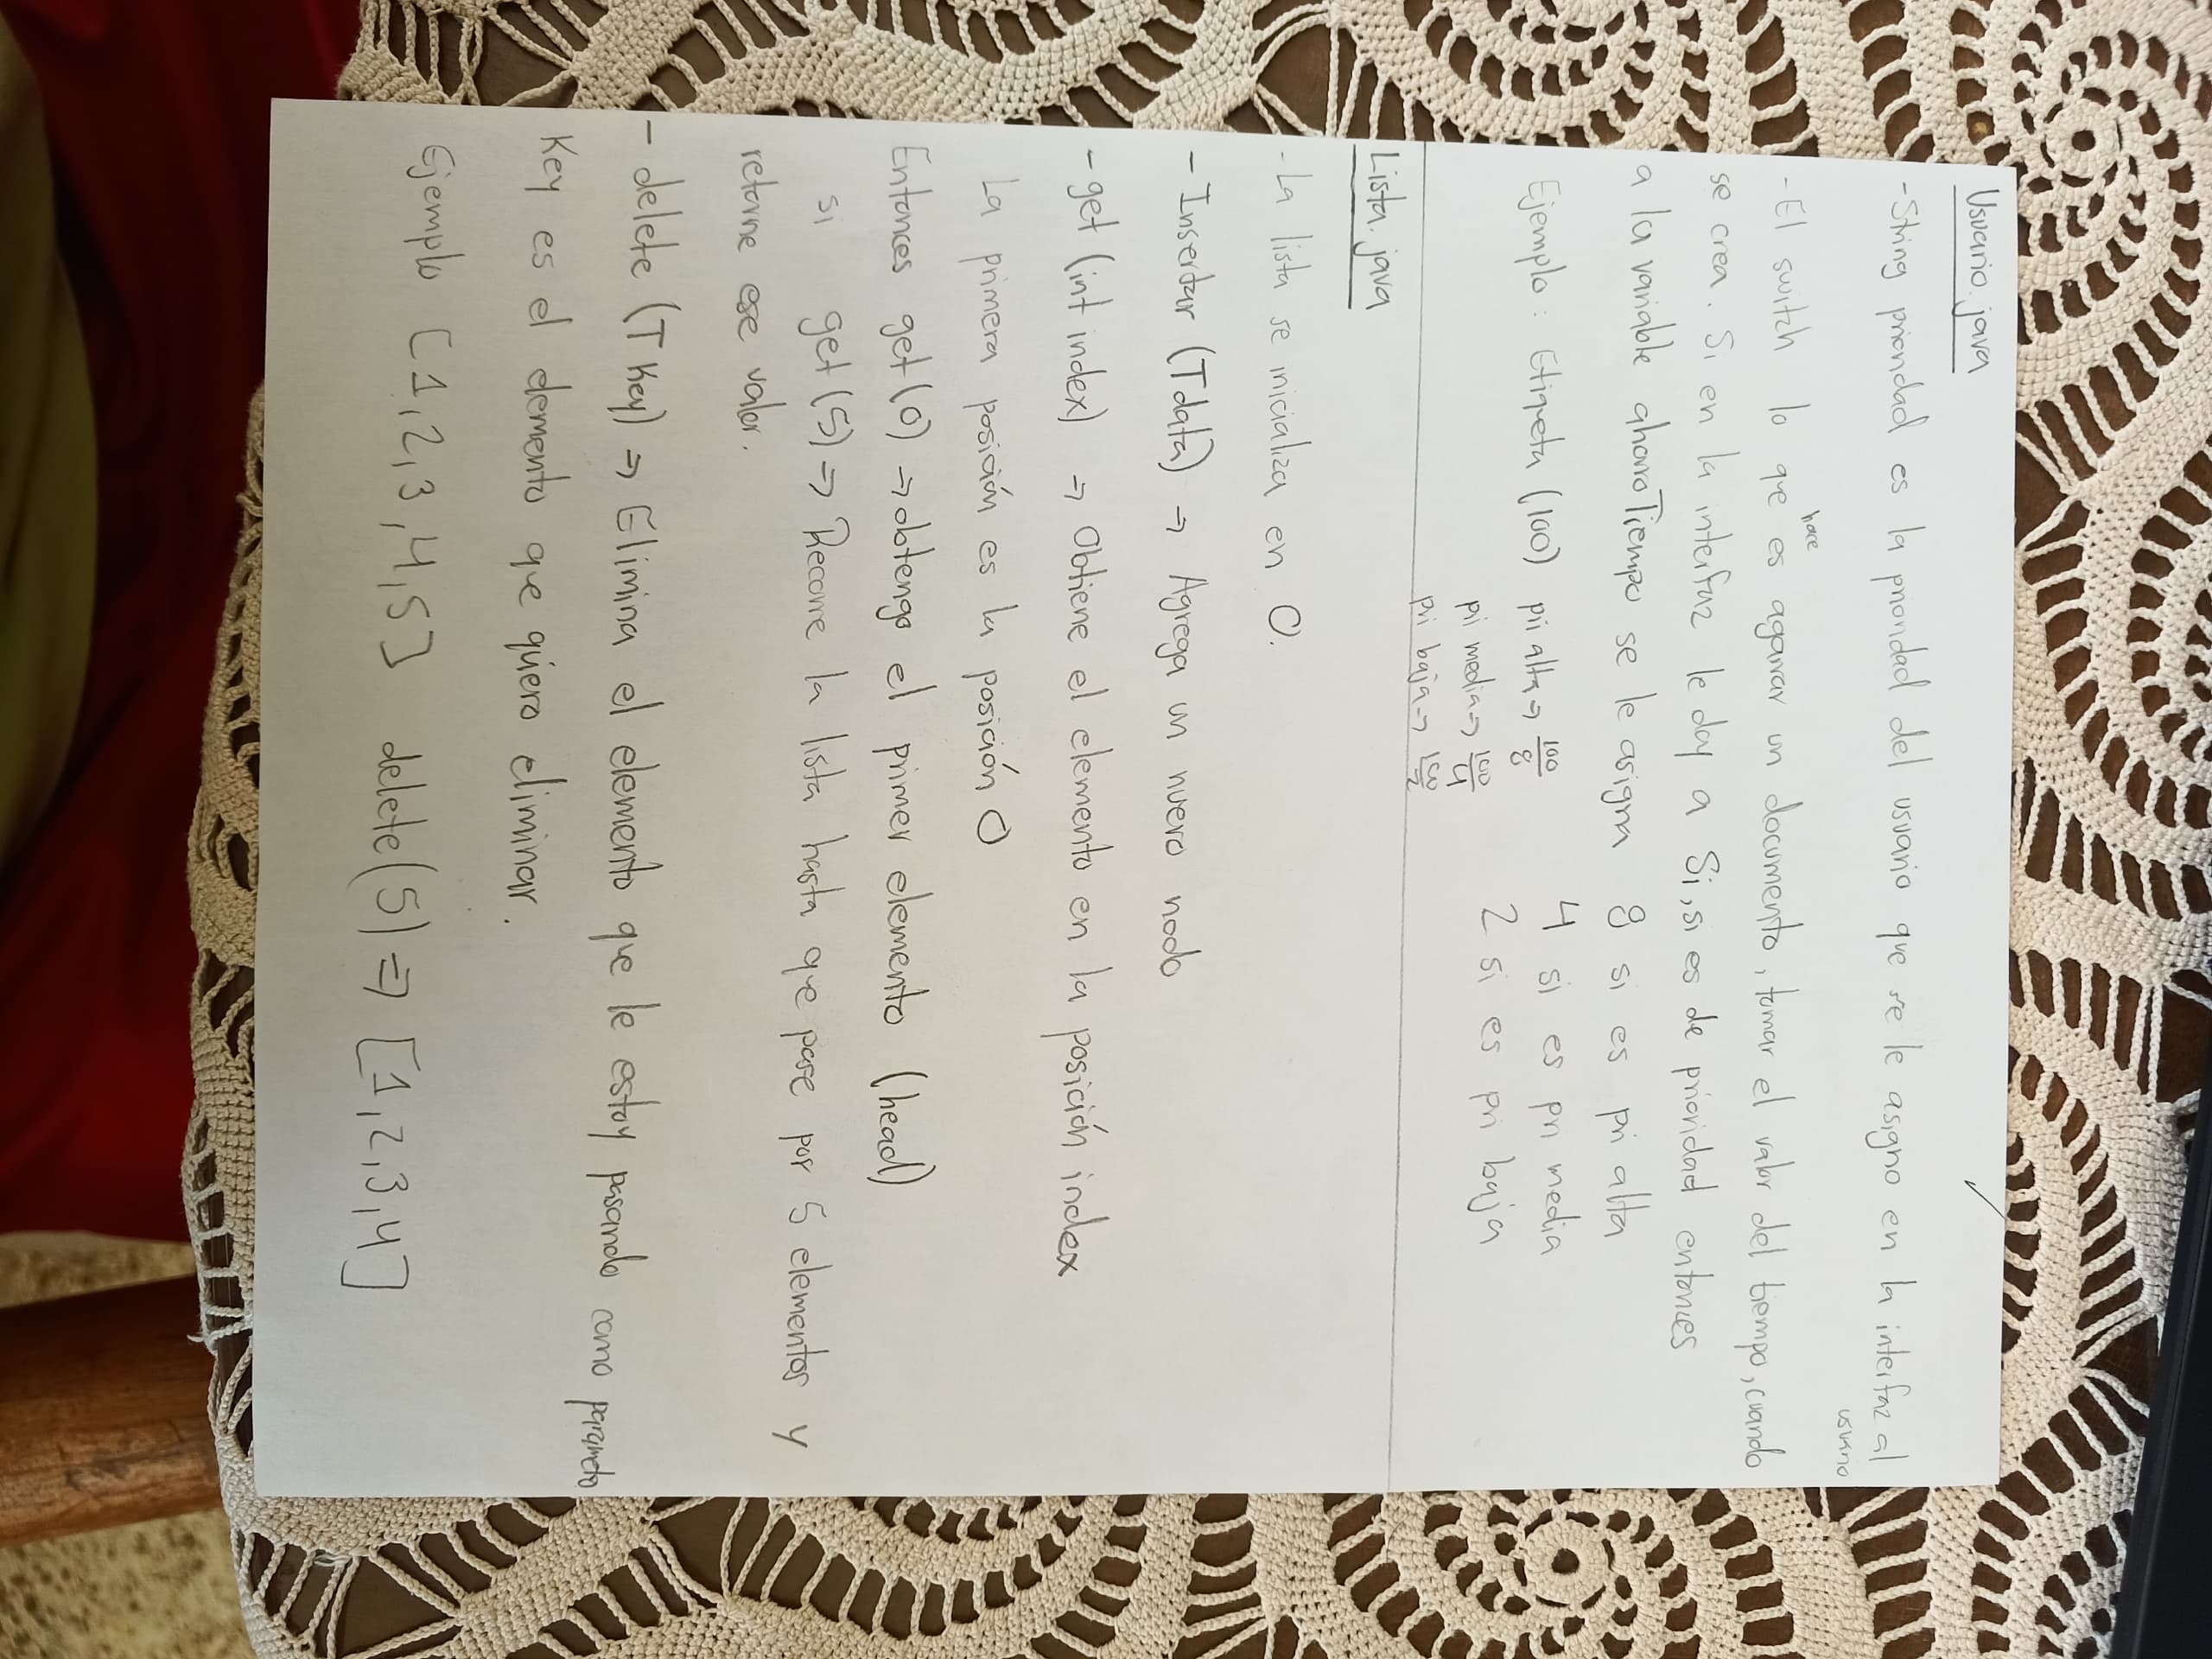 Usuario.java
- String prioridad es la prioridad del usuario que se le asigno en la interfaz al
usuario
hace
- El switch lo que es agarrar un documento, tomar el valor del tiempo, cuando
se crea. Si en la interfaz le doy a Si, si es de prioridad entonces
a la variable ahorroTiempo se le asigna 8 si es pri alta
4 si es pri media
2 si es pri baja
Ejemplo: Etiqueta (100) pri alta → 100/8
pri media → 100/4
pri baja → 100/2
Lista.java
- La lista se inicializa en 0.
- Insertar (T data) → Agrega un nuevo nodo
- get (int index) → Obtiene el elemento en la posición index
La primera posición es la posición 0
Entonces get (0) → obtengo el primer elemento (head)
si get (5) → Recorre la lista hasta que pase por 5 elementos y
retorne ese valor.
- delete (T Key) → Elimina el elemento que le estoy pasando como parametro
Key es el elemento que quiero eliminar.
Ejemplo [1,2,3,4,5] delete(5) ⇒ [1,2,3,4]